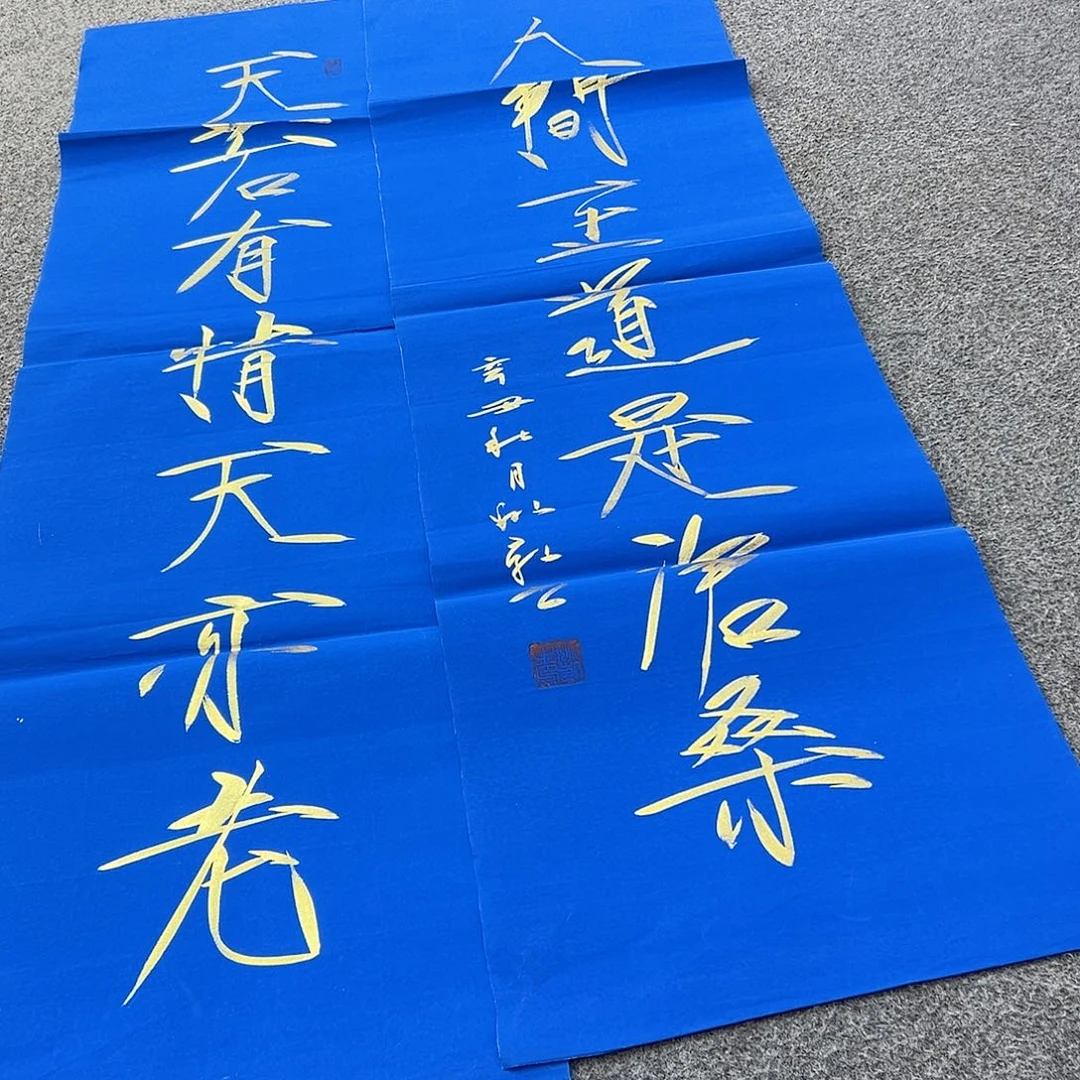 天若有情天亦老
人間正道是滄桑
辛丑秋月